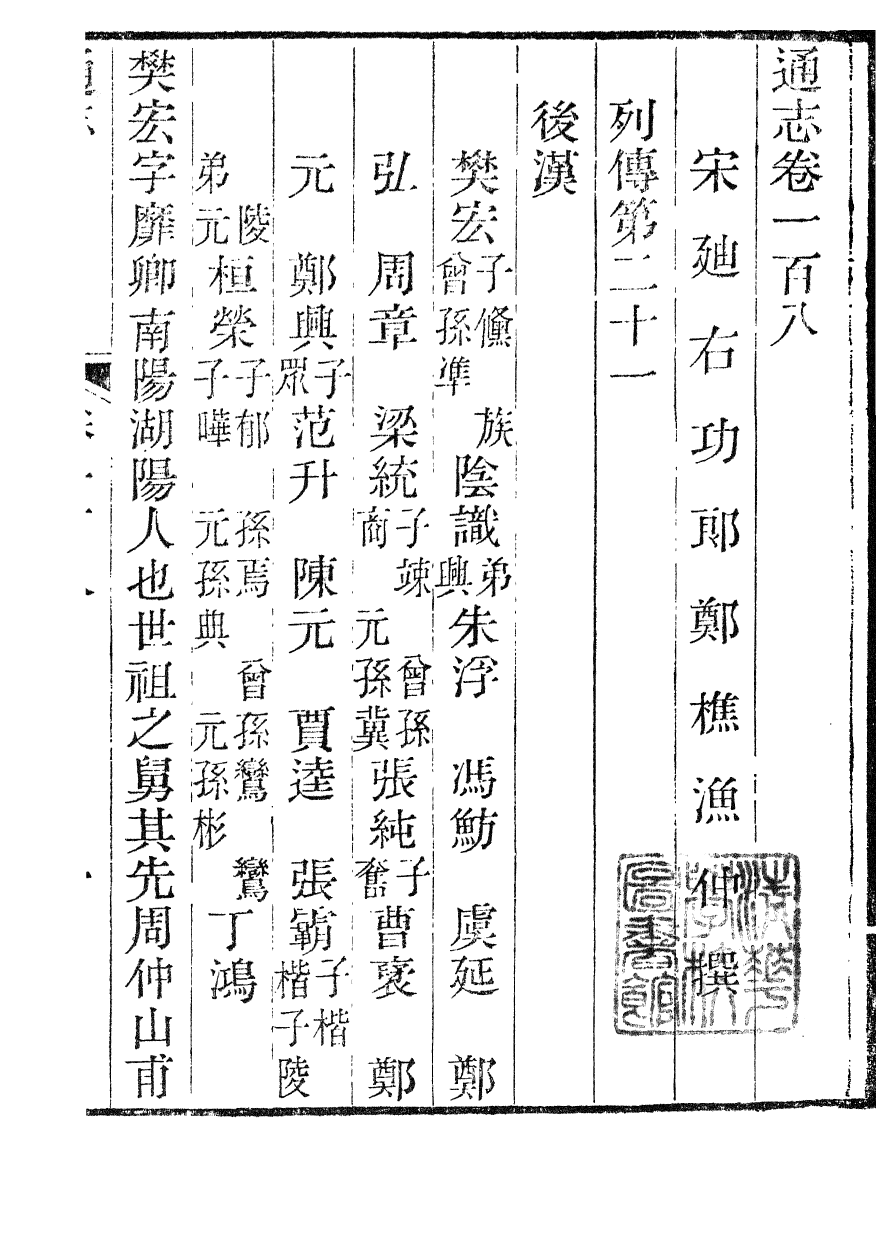 通志卷一百八
宋廸右功郎鄭樵漁仲撰
列傳第二十一
後漢
樊宏子儵族曾孫準陰識弟興朱浮馮魴虞延鄭
弘周章梁統子竦曾孫商元孫冀張純子奮曹襃鄭
元鄭興子眾范升陳元賈逵張霸子楷楷子陵
陵弟元桓榮子郁孫焉曾孫鸞鸞子曄元孫典元孫彬丁鴻
樊宏字靡卿南陽湖陽人也世祖之舅其先周仲山甫